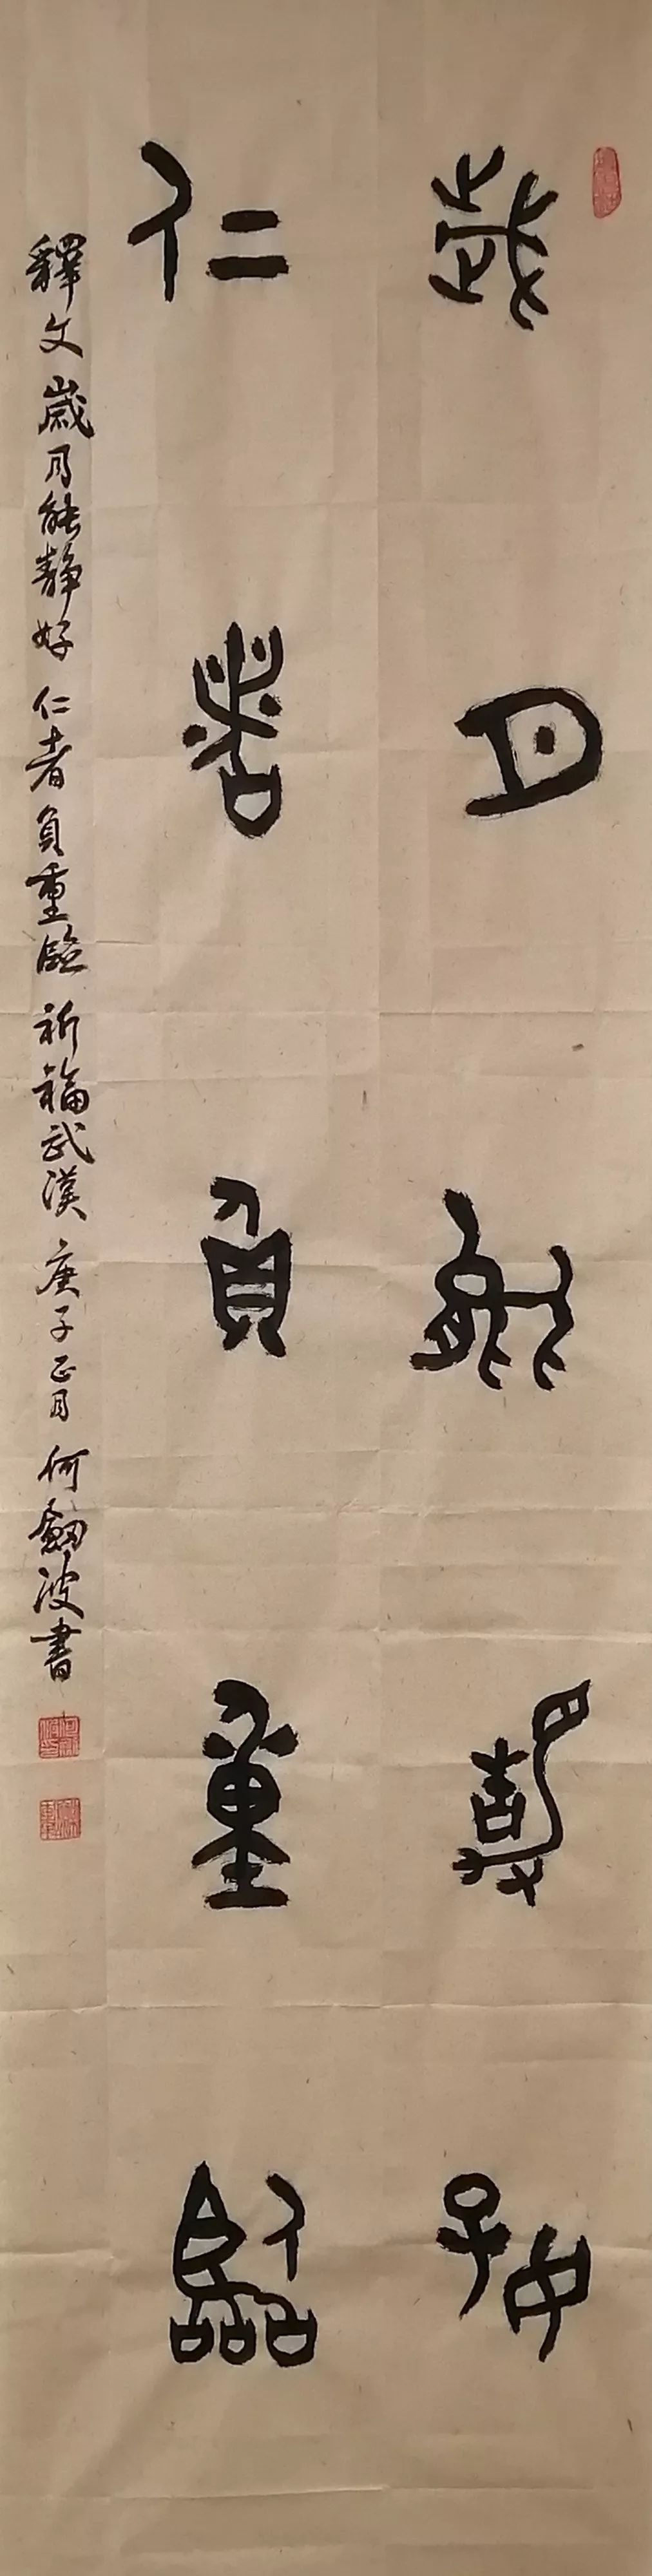 歲月能靜好
仁者負重臨
釋文 歲月能靜好 仁者負重臨 祈福武漢 庚子正月 何劍波書